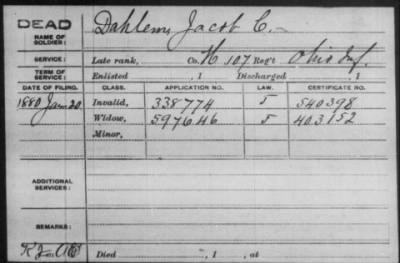 DEAD
NAME OF SOLDIER: Dahlem, Jacob C.
SERVICE: Late rank, Co. H 107 Reg't Ohio Inf.
TERM OF SERVICE: Enlisted , 1 Discharged , 1
DATE OF FILING. CLASS. APPLICATION NO. LAW. CERTIFICATE NO.
1880 Jan. 20 Invalid, 338774 5 540398
Widow, 597646 5 403152
Minor,
ADDITIONAL SERVICES:
REMARKS:
Died , 1 , at